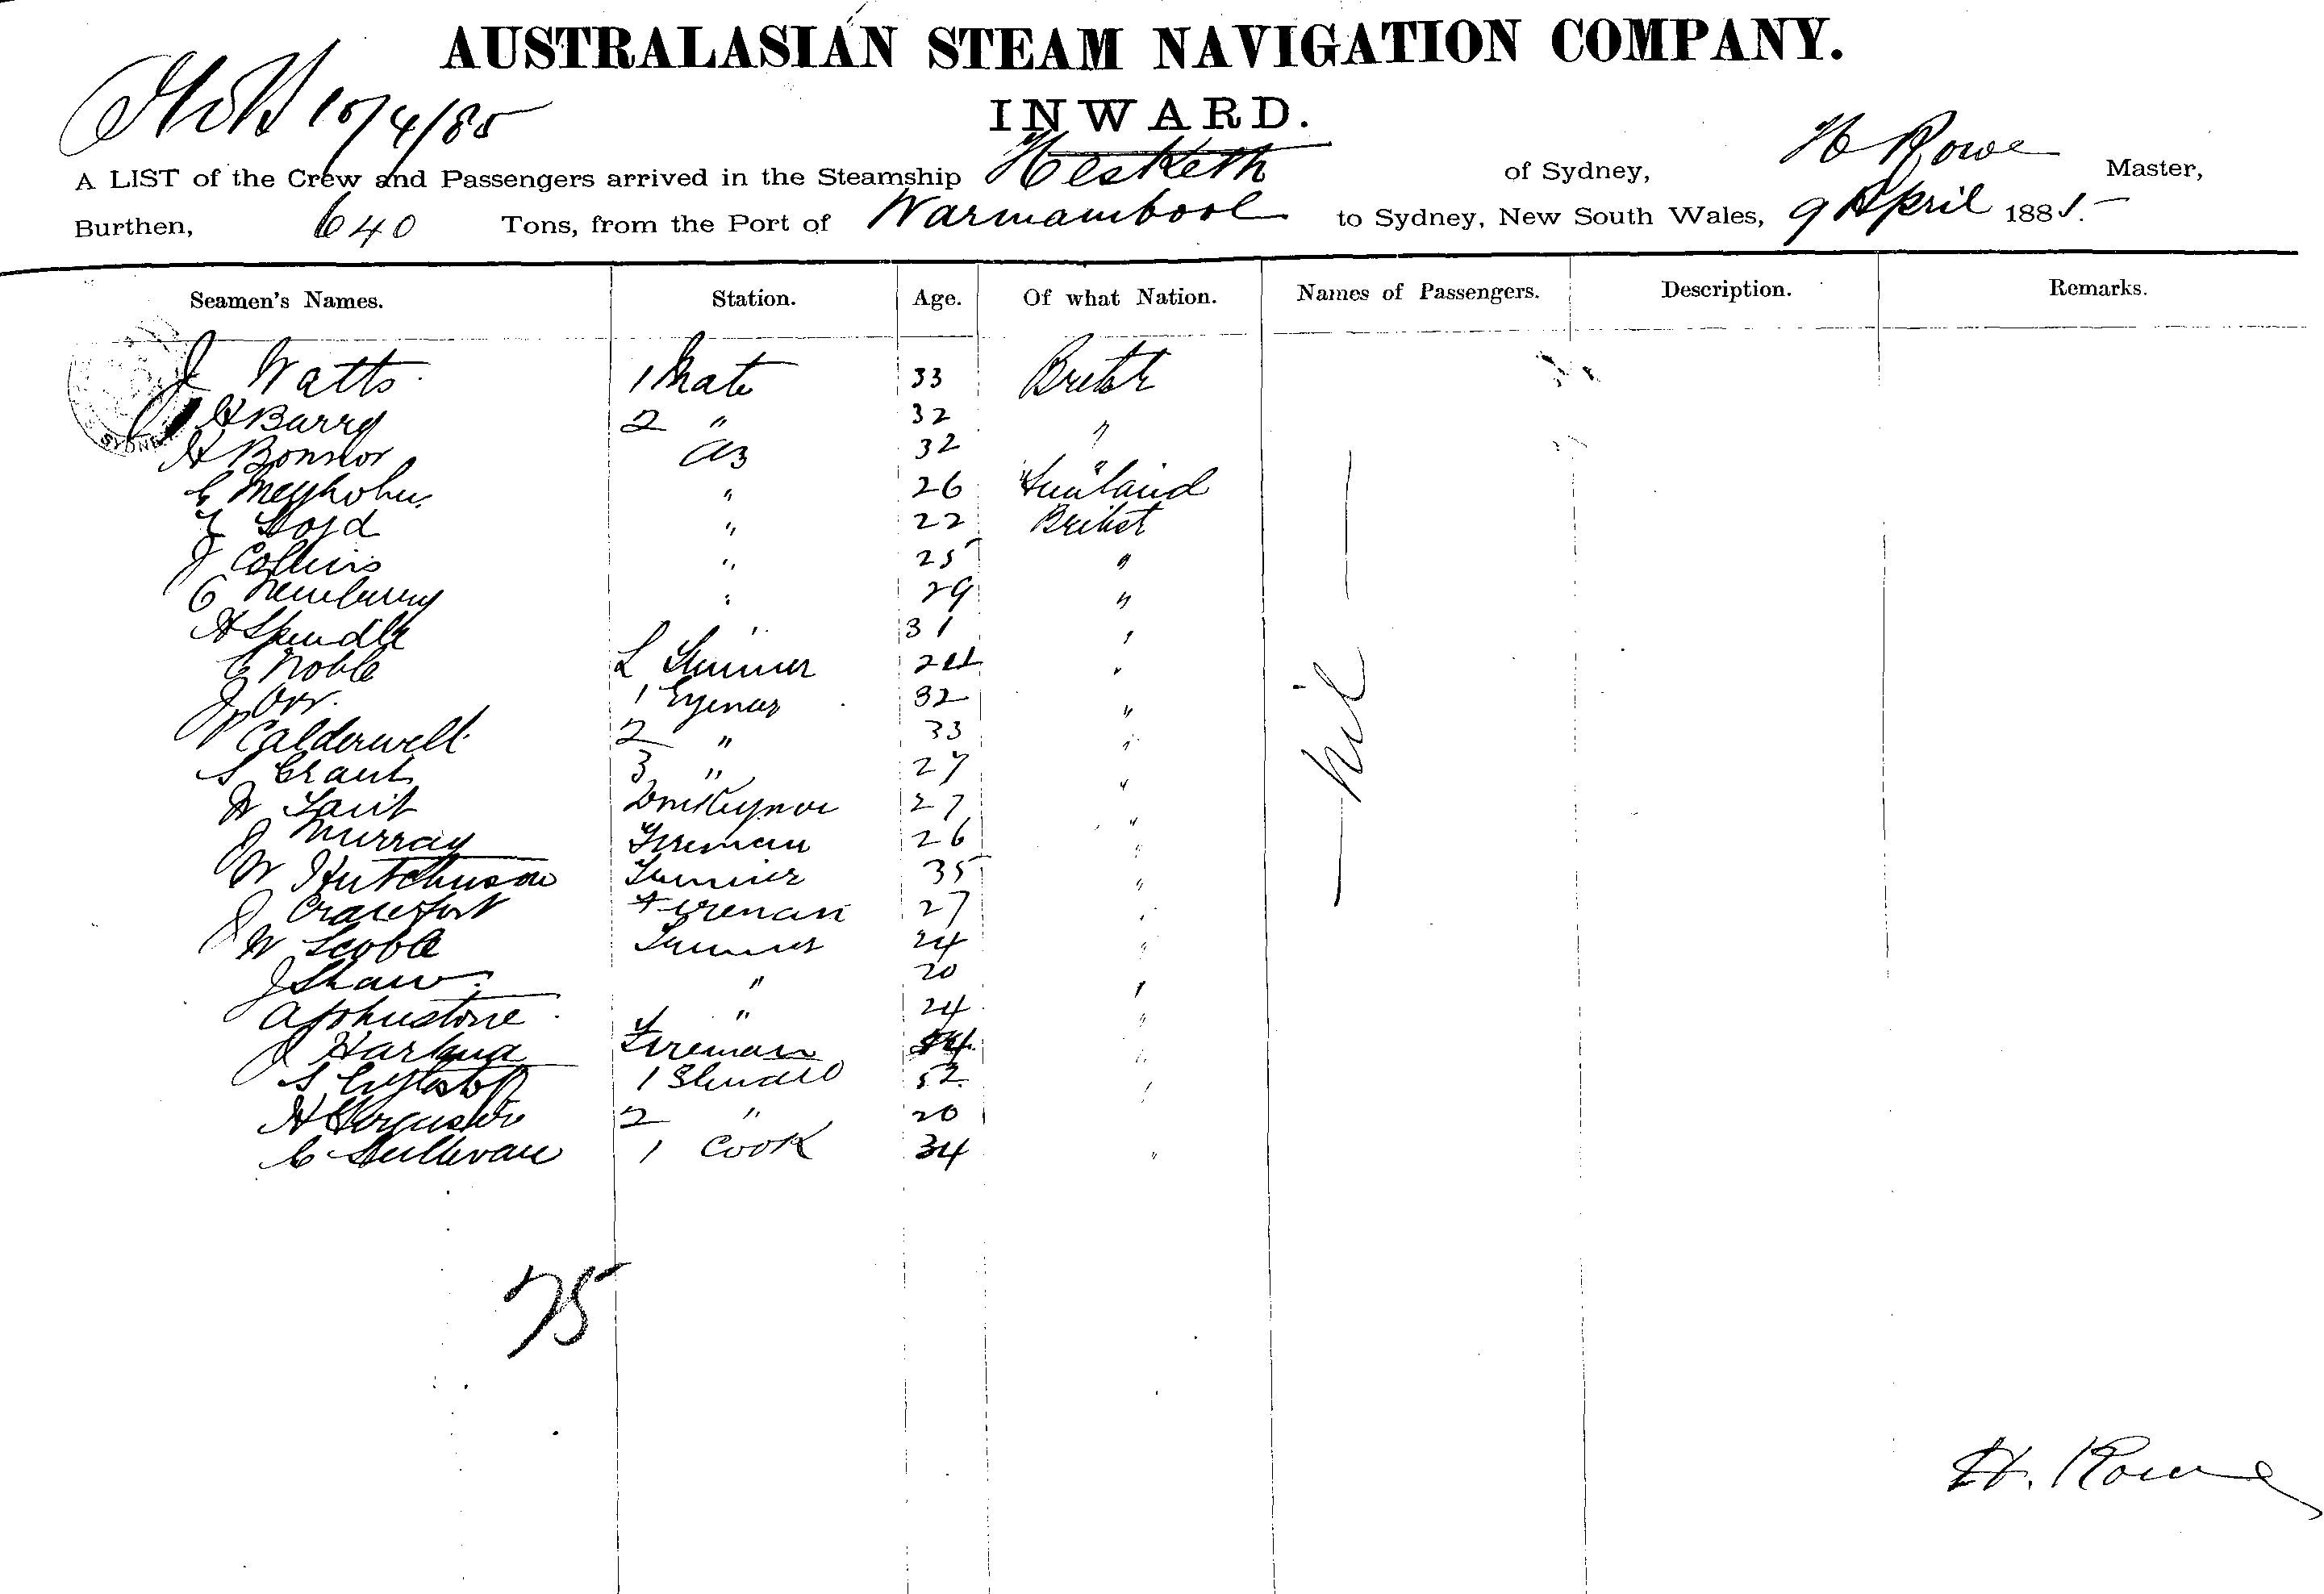 AUSTRALASIAN STEAM NAVIGATION COMPANY.
10/4/85
INWARD.
A LIST of the Crew and Passengers arrived in the Steamship Hesketh of Sydney, H Rowe Master,
Burthen, 640 Tons, from the Port of Warmambool to Sydney, New South Wales, 9 April 1885.
Seamen's Names. Station. Age. Of what Nation. Names of Passengers. Description. Remarks.
J Watts 1 Mate 33 British
H Barry 2 " 32 "
H Bonsor AB 32 "
" 26
Loyd " 22 British
J Collins " 25 "
C Newberry " 29 "
H Spindle " 31 "
C Noble L 24 "
J Orr. 1 32 "
P Calderwell 2 " 33 "
S Grant 3 " 27 "
27 "
J Murray Fireman 26 "
W Hutchinson Trimmer 35 "
J Fireman 27 "
W Scoble Trimmer 24 "
J Shaw " 20 "
A Johnstone " 24 "
J Fireman "
S 1 52 "
H Ferguson 2 " 20
C Sullivan 1 Cook 34 "
— nil —
SYDNEY
H. Rowe